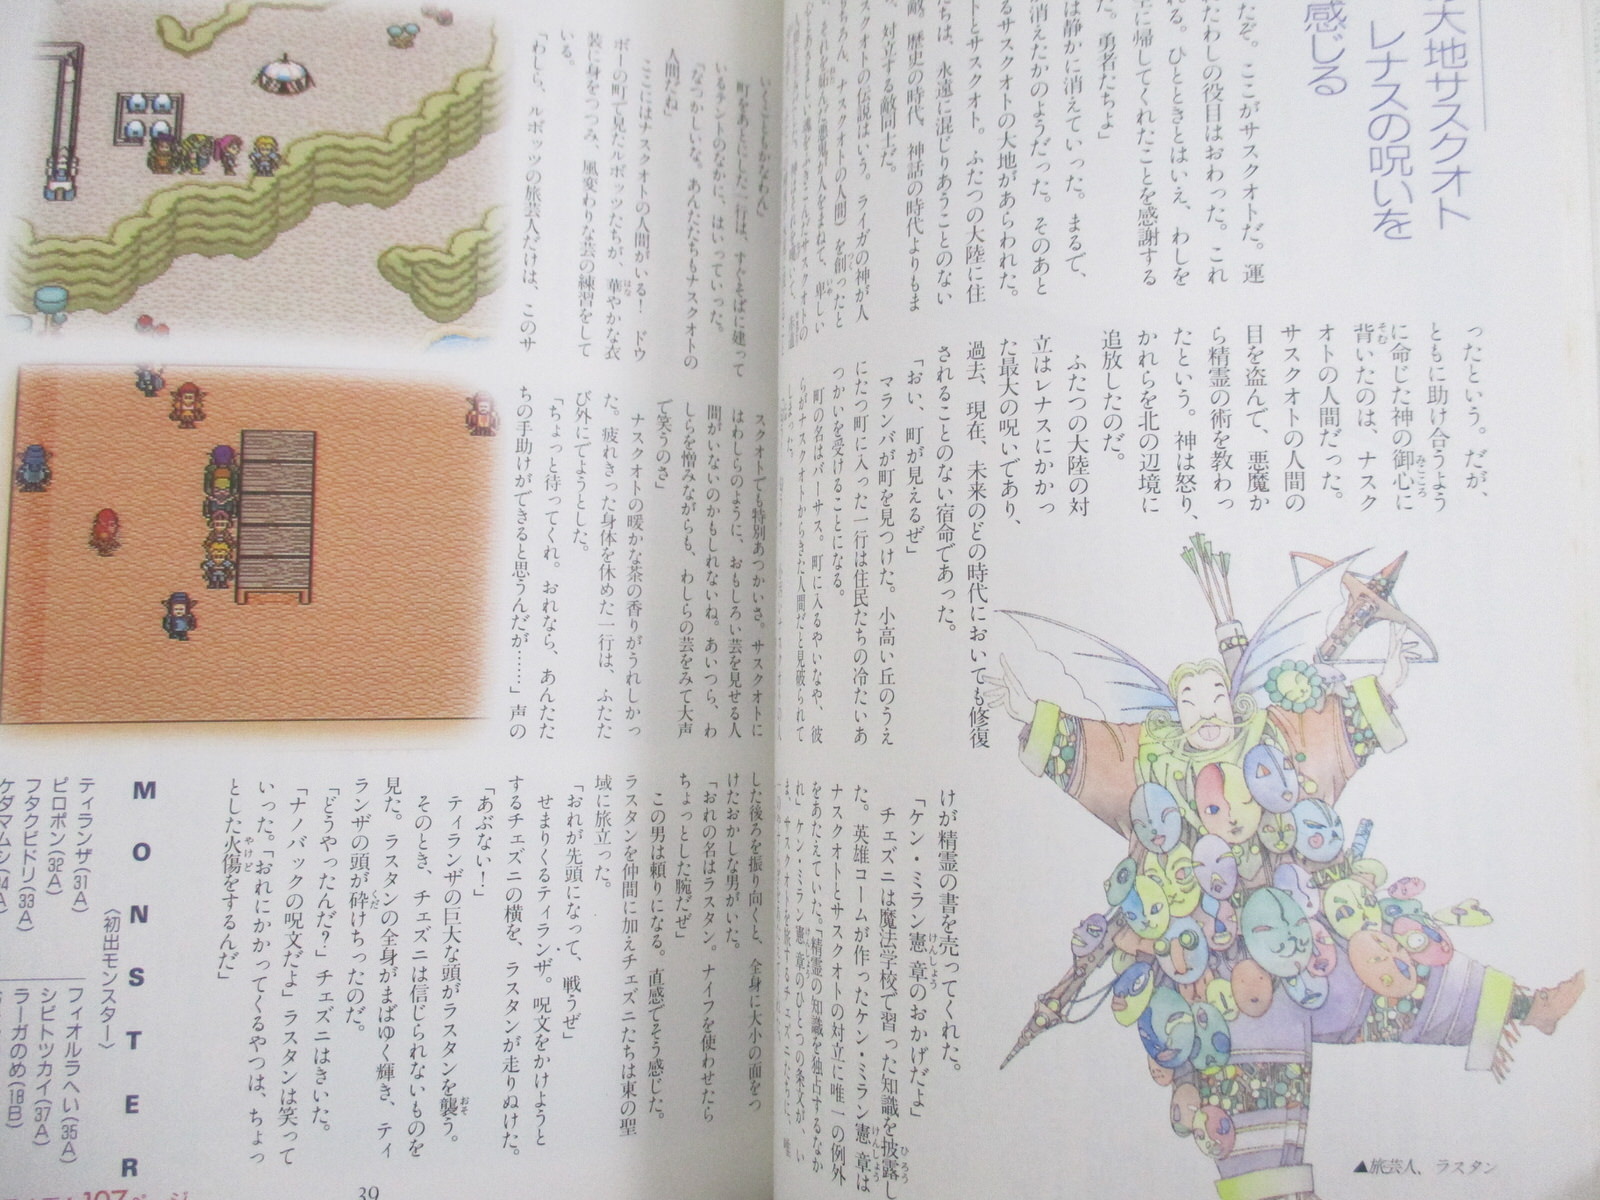 大地サスクオト
レナスの呪いを
感じる
たぞ。ここがサスクオトだ。運
たわしの役目はおわった。これ
る。ひとときとはいえ、わしを
に帰してくれたことを感謝する
た。勇者たちよ」
は静かに消えていった。まるで、
消えたかのようだった。そのあと
るサスクオトの大地があらわれた。
トとサスクオト。ふたつの大陸に住
たちは、永遠に混じりあうことのない
敵。歴史の時代、神話の時代よりもま
対立する敵同士だ。
スクオトの伝説はいう。ライガの神が人
ちろん、ナスクオトの人間）を創ったと
ったという。だが、
ともに助け合うよう
に命じた神の御心に
背いたのは、ナスク
オトの人間だった。
サスクオトの人間の
目を盗んで、悪魔か
ら精霊の術を教わっ
たという。神は怒り、
かれらを北の辺境に
追放したのだ。
ふたつの大陸の対
立はレナスにかかっ
た最大の呪いであり、
過去、現在、未来のどの時代においても修復
されることのない宿命であった。
「おい、町が見えるぜ」
マランバが町を見つけた。小高い丘のうえ
にたつ町に入った一行は住民たちの冷たいあ
つかいを受けることになる。
町の名はバーサス。町に入るやいなや、彼
らがナスクオトからきた人間だと見破られて
しまった。
けが精霊の書を売ってくれた。
「ケン・ミラン憲章のおかげだよ」
チェズニは魔法学校で習った知識を披露し
た。英雄コームが作ったケン・ミラン憲章は
ナスクオトとサスクオトの対立に唯一の例外
をあたえていた。「精霊の知識を独占するなか
れ」ケン・ミラン憲章のひとつの条文が、い
▲旅芸人、ラスタン
いくこともかなわん」
町をあとにした一行は、すぐそばに建って
いるテントのなかに、はいっていった。
「なつかしいな。あんたたちもナスクオトの
人間だね」
ここにはナスクオトの人間がいる！　ドウ
ボーの町で見たルボッツたちが、華やかな衣
装に身をつつみ、風変わりな芸の練習をして
いる。
「わしら、ルボッツの旅芸人だけは、このサ
スクオトでも特別あつかいさ。サスクオトに
はわしらのように、おもしろい芸を見せる人
間がいないのかもしれないね。あいつら、わ
しらを憎みながらも、わしらの芸をみて大声
で笑うのさ」
ナスクオトの暖かな茶の香りがうれしかっ
た。疲れきった身体を休めた一行は、ふたた
び外にでようとした。
「ちょっと待ってくれ。おれなら、あんたた
ちの手助けができると思うんだが……」声の
した後ろを振り向くと、全身に大小の面をつ
けたおかしな男がいた。
「おれの名はラスタン。ナイフを使わせたら
ちょっとした腕だぜ」
この男は頼りになる。直感でそう感じた。
ラスタンを仲間に加えチェズニたちは東の聖
域に旅立った。
「おれが先頭になって、戦うぜ」
せまりくるティランザ。呪文をかけようと
するチェズニの横を、ラスタンが走りぬけた。
「あぶない！」
ティランザの巨大な頭がラスタンを襲う。
そのとき、チェズニは信じられないものを
見た。ラスタンの全身がまばゆく輝き、ティ
ランザの頭が砕けちったのだ。
「どうやったんだ？」チェズニはきいた。
「ナノバックの呪文だよ」ラスタンは笑って
いった。「おれにかかってくるやつは、ちょっ
とした火傷をするんだ」
MONSTER
〈初出モンスター〉
ティランザ(31A)
ピロポン(32A)
フタクビドリ(33A)
ケダマムシ
フィオルラへい(35A)
シビトツカイ(37A)
ラーガのめ(18B)
107ページ
39